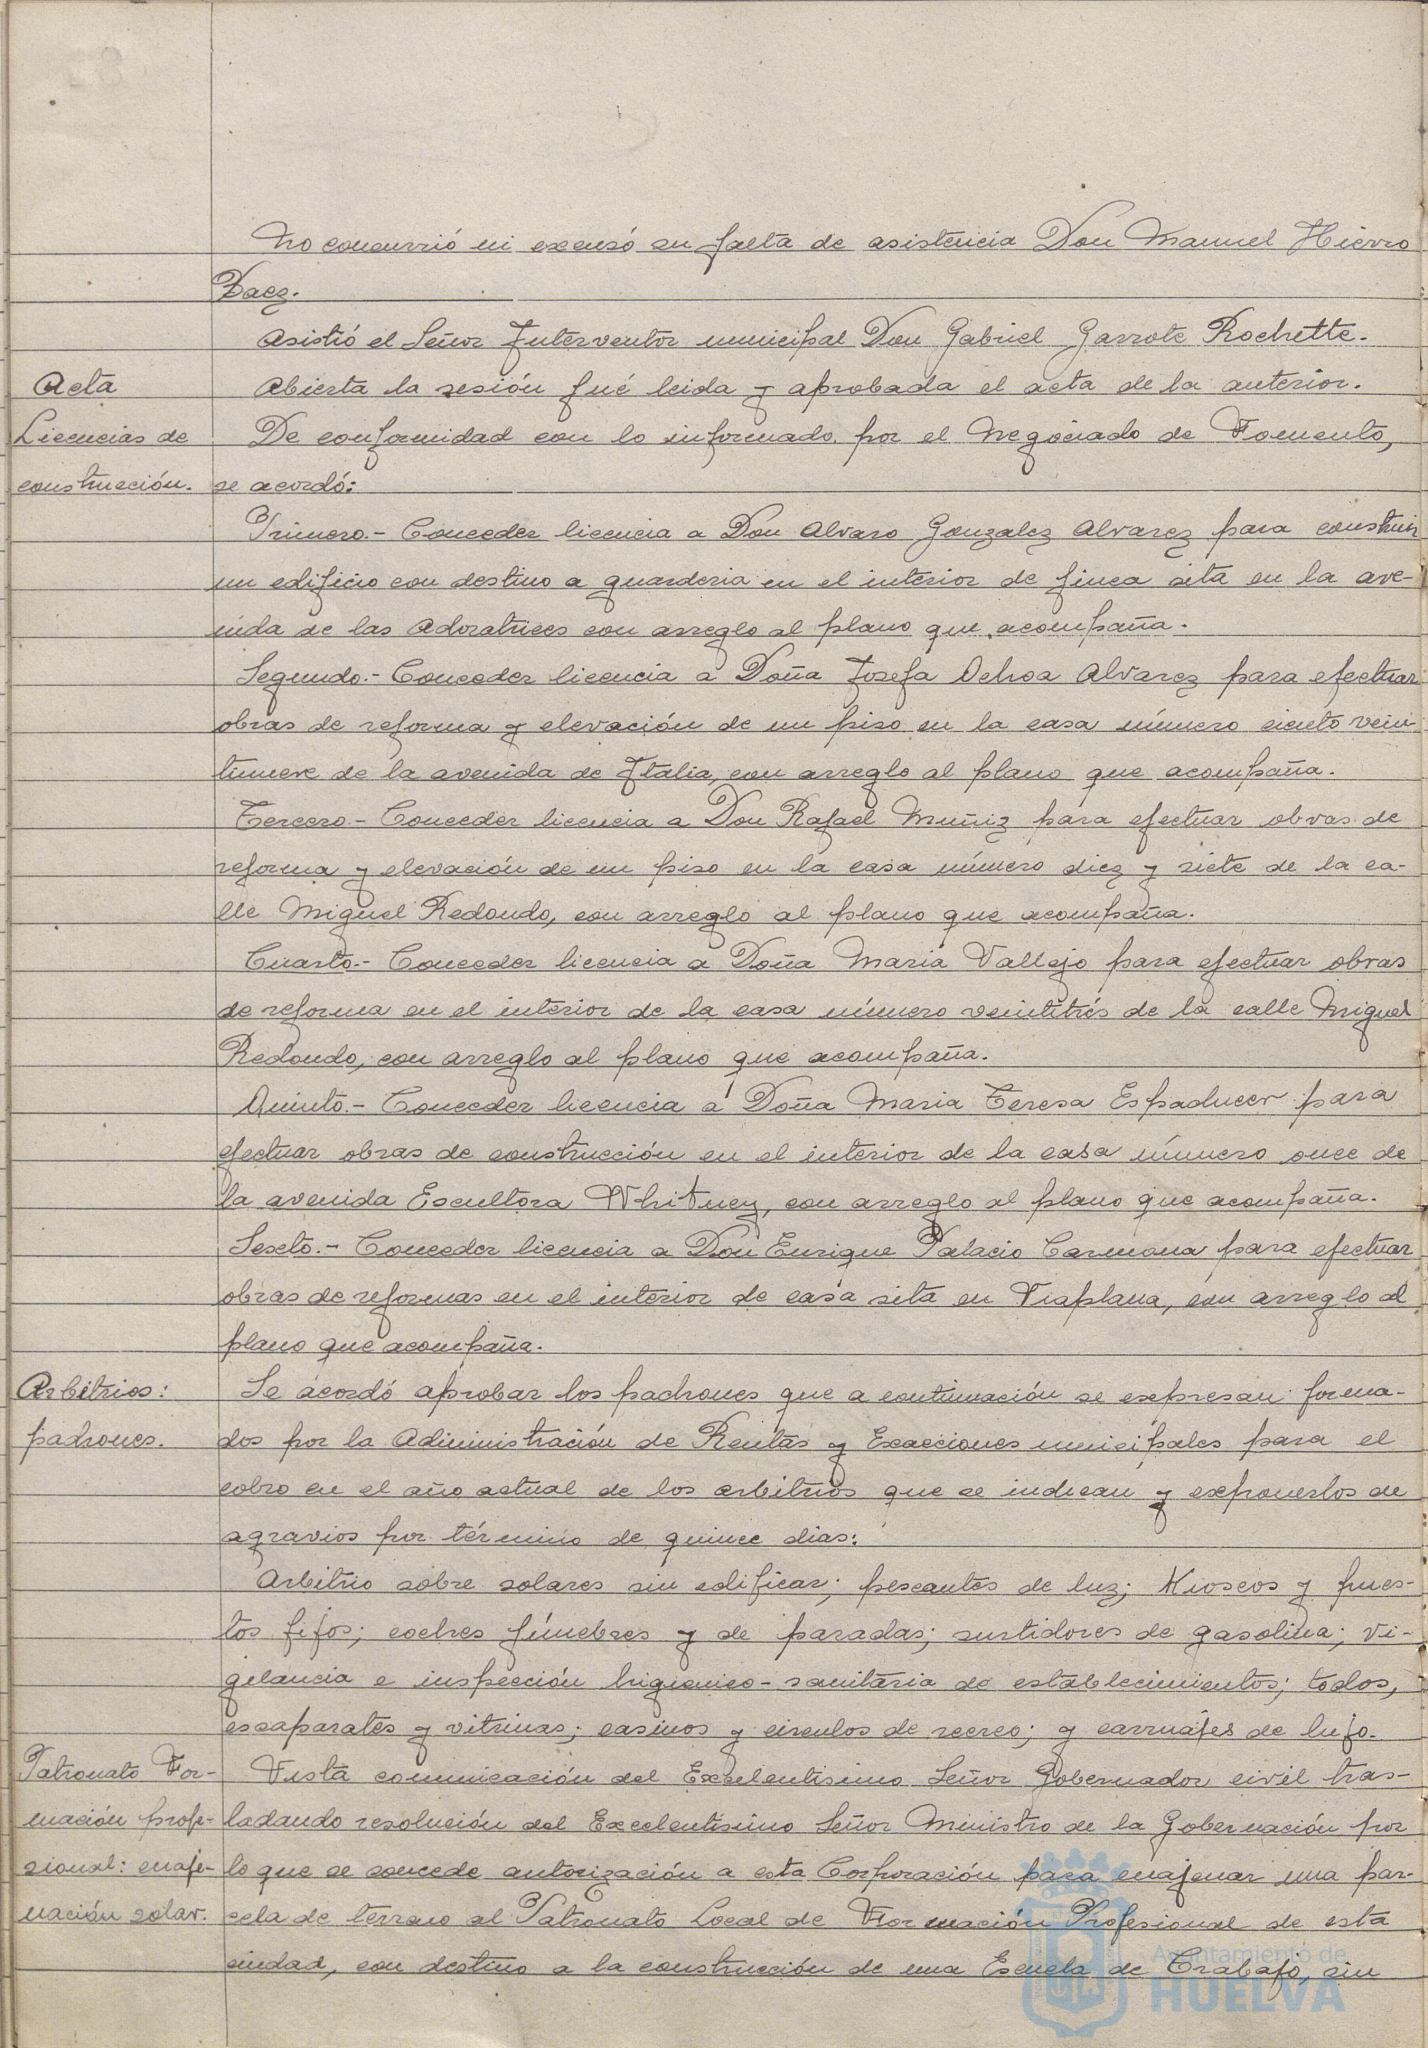 No concurrió ni excusó su falta de asistencia Don Manuel Hierro
Daez.
Asistió el Señor Interventor municipal Don Gabriel Garrote Rochette.
Acta
Abierta la sesión fué leida y aprobada el acta de la anterior.
Licencias de
construcción.
De conformidad con lo informado por el Negociado de Fomento,
se acordó:
Primero.- Conceder licencia a Don Alvaro Gonzalez Alvarez para construir
un edificio con destino a guarderia en el interior de finca sita en la ave-
nida de las Adoratrices con arreglo al plano que acompaña.
Segundo.- Conceder licencia a Doña Josefa Ochoa Alvarez para efectuar
obras de reforma y elevación de un piso en la casa número ciento vein-
tinueve de la avenida de Italia, con arreglo al plano que acompaña.
Tercero.- Conceder licencia a Don Rafael Muñiz para efectuar obras de
reforma y elevación de un piso en la casa número diez y siete de la ca-
lle Miguel Redondo, con arreglo al plano que acompaña.
Cuarto.- Conceder licencia a Doña Maria Vallejo para efectuar obras
de reforma en el interior de la casa número veintitrés de la calle Miguel
Redondo, con arreglo al plano que acompaña.
Quinto.- Conceder licencia a Doña Maria Teresa Espaducer para
efectuar obras de construcción en el interior de la casa número once de
la avenida Escultora Whitney, con arreglo al plano que acompaña.
Sexto.- Conceder licencia a Don Enrique Palacio Carmona para efectuar
obras de reformas en el interior de casa sita en Viaplana, con arreglo al
plano que acompaña.
Arbitrios:
padrones.
Se acordó aprobar los padrones que a continuación se expresan forma-
dos por la Administración de Rentas y Exacciones municipales para el
cobro en el año actual de los arbitrios que se indican y exponerlos de
agravios por término de quince dias:
Arbitrio sobre solares sin edificar; pescantes de luz; Kioscos y pues-
tos fijos; coches fúnebres y de paradas; surtidores de gasolina; vi-
gilancia e inspección higienico-sanitaria de establecimientos; todos,
escaparates y vitrinas; casinos y circulos de recreo; y carruajes de lujo.
Patronato For-
mación profe-
sional: enaje-
nación solar.
Vista comunicación del Excelentisimo Señor Gobernador civil tras-
ladando resolución del Excelentisimo Señor Ministro de la Gobernación por
lo que se concede autorización a esta Corporación para enajenar una par-
cela de terreno al Patronato Local de Formación Profesional de esta
ciudad, con destino a la construcción de una Escuela de Trabajo, sin
Ayuntamiento de
HUELVA